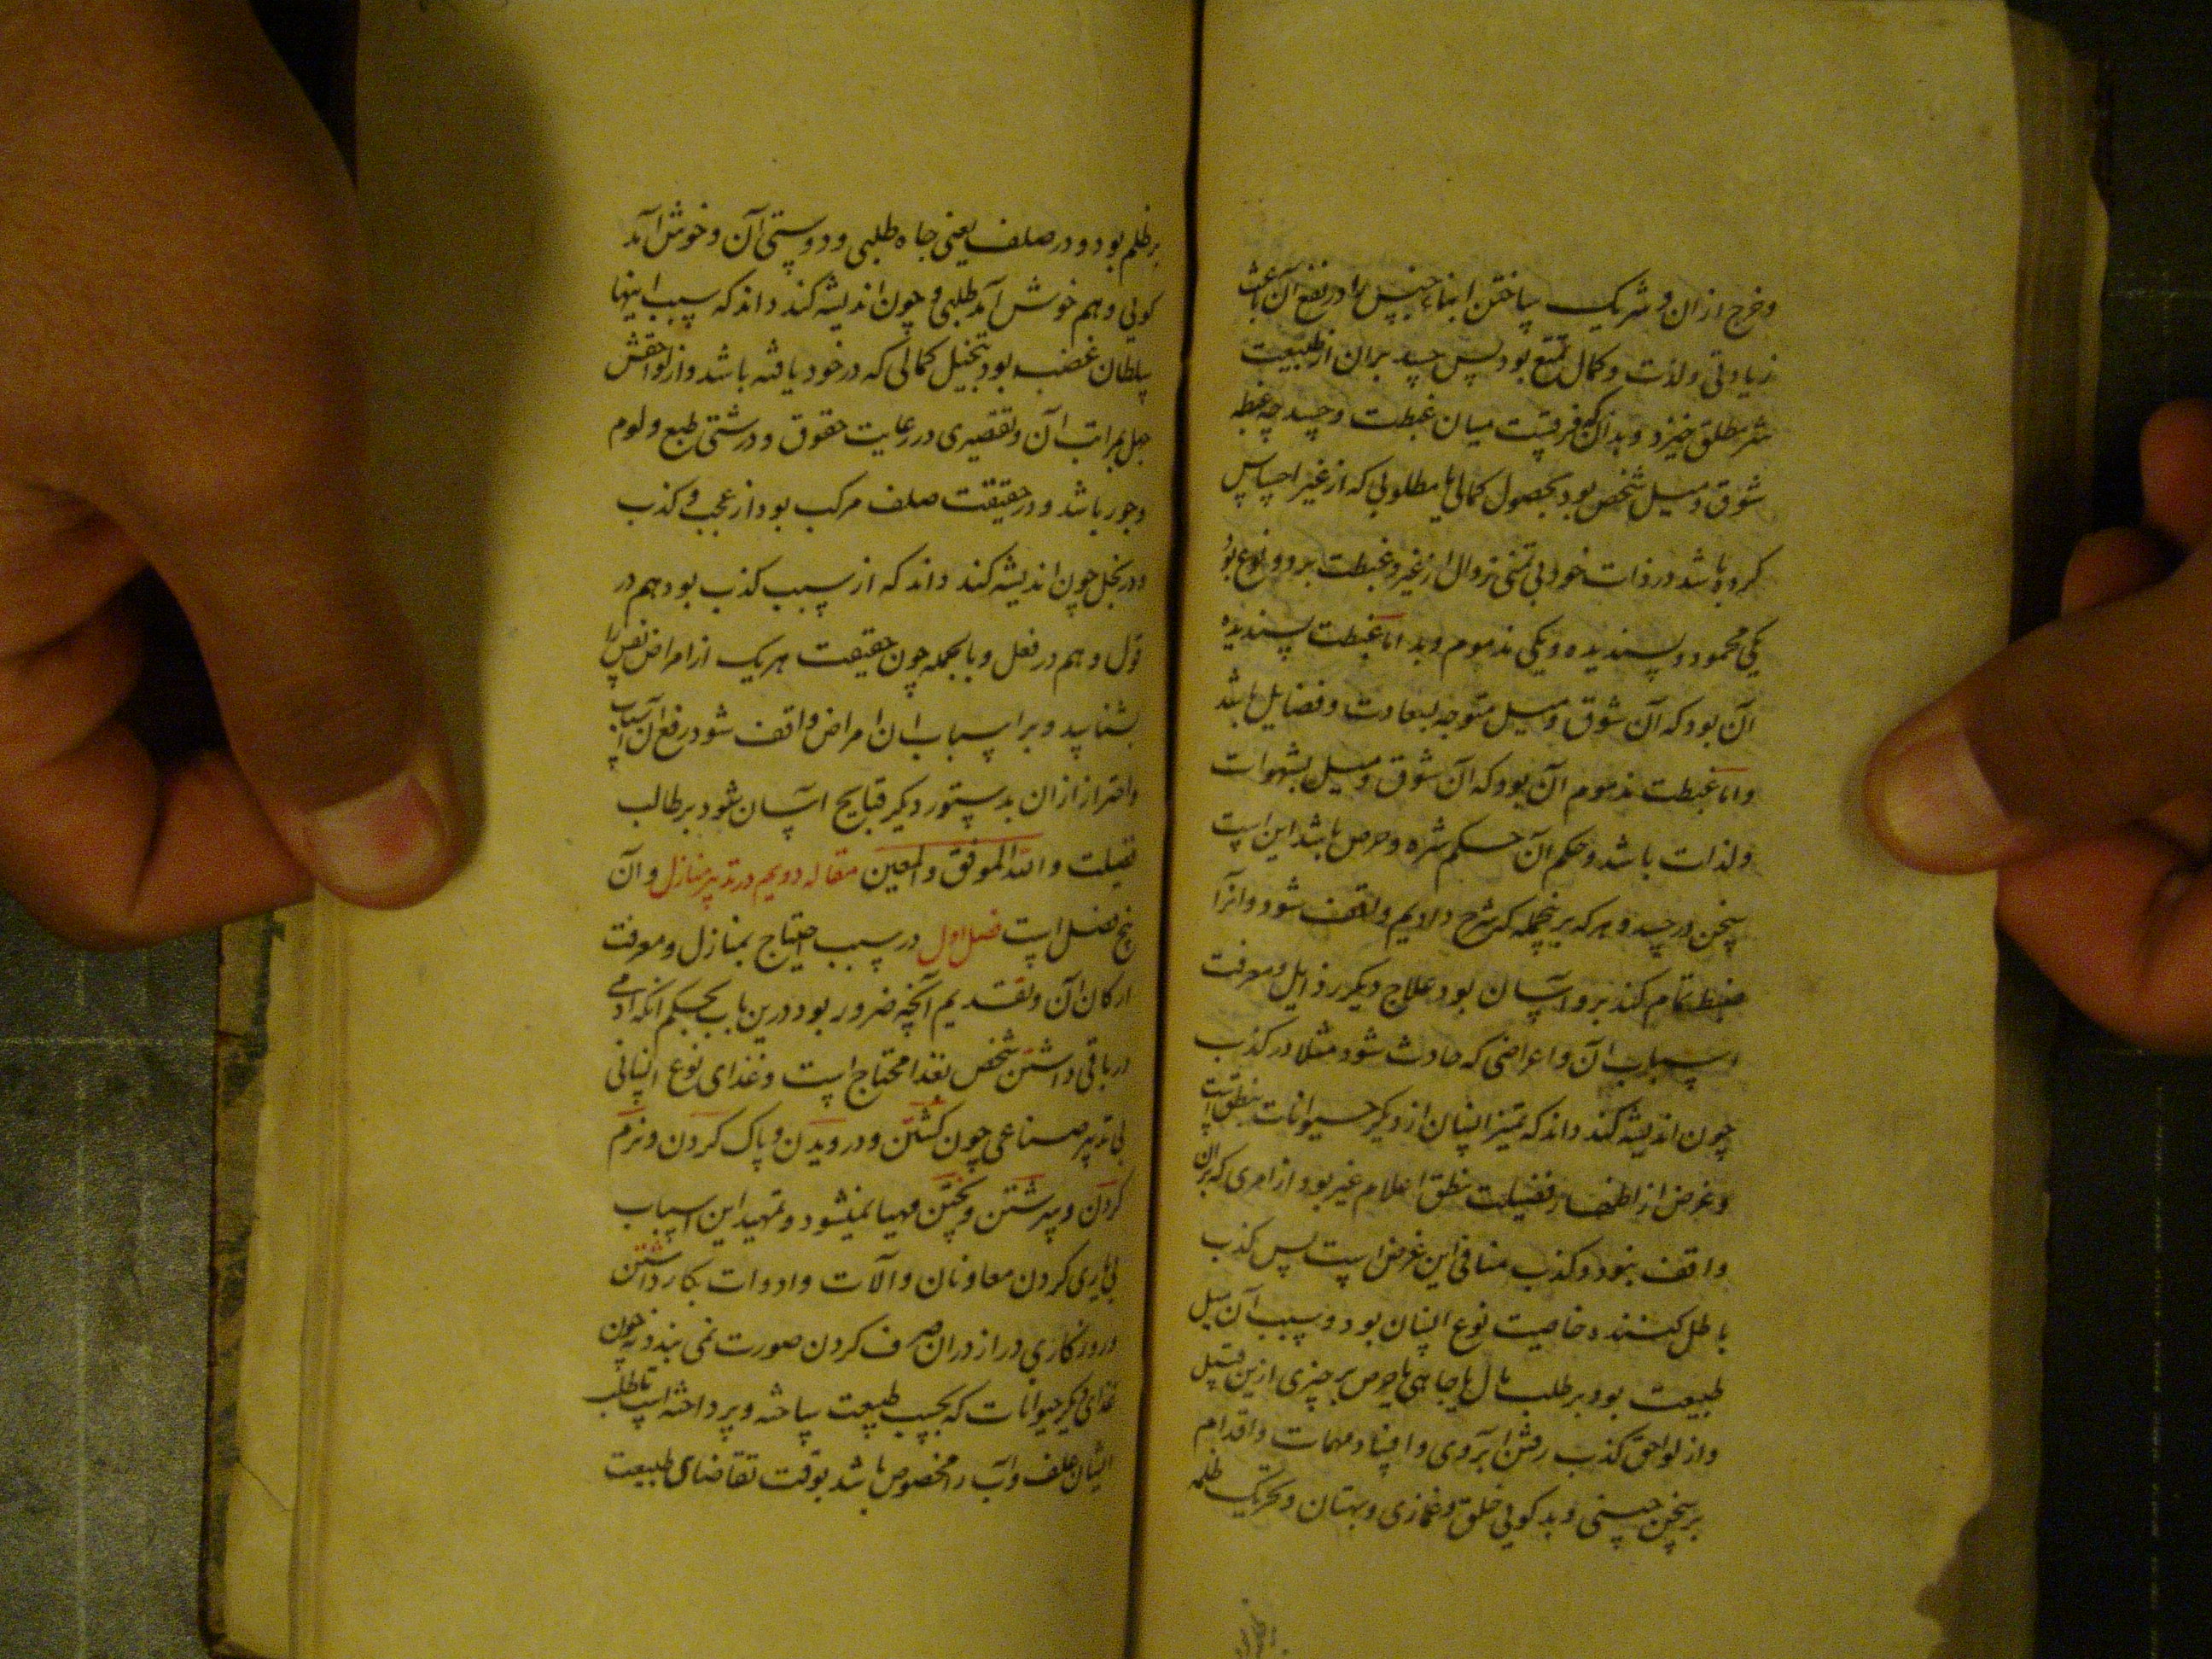 و خرج ازان و شریک ساختن ابناء جنس را در نفع آن باعث
زیادتی و لذت و کمال تمتع بود پس حسد بران از طبیعت
شر مطلق خیزد و بدانکه فرقست میان غبطت و حسد چه غبطه
شوق و میل شخص بود بحصول کمالی یا مطلوبی که از غیر احساس
کرده باشد در ذات خود بی تمنی زوال از غیر و غبطت بر دو نوع بود
یکی محمود و پسندیده و یکی مذموم و بد اما غبطت پسندیده
آن بود که آن شوق و میل متوجه بسعادت و فضایل باشد
و اما غبطت مذموم آن بود که آن شوق و میل بشهوات
و لذات باشد و حکم آن حکم شره و حرص باشد این است
سخن در حسد و هر که برینجمله که شرح دادیم واقف شود و انرا
ضبط تمام کند برو آسان بود علاج دیگر رذایل و معرفت
اسباب آن و اعراضی که حادث شود مثلا در کذب
چون اندیشه کند داند که تمیز انسان از دیگر حیوانات بنطق است
و غرض از اظهار فضیلت نطق اعلام غیر بود از امری که بران
واقف نبود و کذب منافی این غرض است پس کذب
باطل کننده خاصیت نوع انسان بود و سبب آن میل
طبیعت بود بر طلب مال یا جاهی یا حرص بر چیزی ازین قبیل
و از لواحق کذب رفتن آبروی و افساد مهمات و اقدام
بر سخن چینی و بد کویی خلق و غمازی و بهتان و تحریک ظلمه
بر ظلم بود و در صلف یعنی جاه طلبی و دوستی آن و خوش آمد
کویی و هم خوش آمد طلبی و چون اندیشه کند داند که سبب اینها
سلطان غضب بود و تخیل کمالی که در خود یافته باشد و از لواحقش
جهل بمراتب آن و تقصیری در رعایت حقوق و درشتی طبع و لوم
و جور باشد و در حقیقت صلف مرکب بود از عجب و کذب
و در بخل چون اندیشه کند داند که از سبب کذب بود هم در
قول و هم در فعل و بالجمله چون حقیقت هر یک از امراض نفس را
بشناسد و بر اسباب ان امراض واقف شود رفع ان اسباب
و احتراز ازان بدستور دیگر قبایح آسان شود بر طالب
فضیلت و الله الموفق و المعین مقاله دویم در تدبیر منازل و آن
پنج فصل است فصل اول در سبب احتیاج بمنازل و معرفت
ارکان آن و تقدیم آنچه ضرور بود درین باب بحکم انکه آدمی
در باقی داشتن شخص بغذا محتاج است و غذای نوع انسانی
بی تدبیر صناعی چون کشتن و درویدن و پاک کردن و نرم
کردن و سرشتن و پختن مهیا نمیشود و تمهید این اسباب
بی یاری کردن معاونان و آلات و ادوات بکار داشتن
و روزکاری دراز دران صرف کردن صورت نمی بندد نه چون
غذای دیگر حیوانات که بحسب طبیعت ساخته و پرداخته است تا طلب
ایشان علف و آب را مخصوص باشد بوقت تقاضای طبیعت